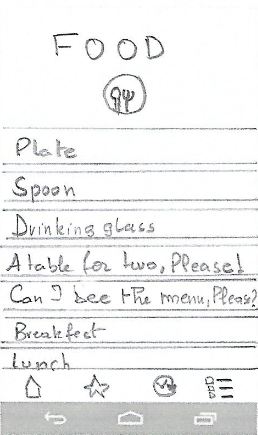 FOOD
Plate
Spoon
Drinking glass
A table for two, Please!
Can I see the menu, Please?
Breakfast
Lunch